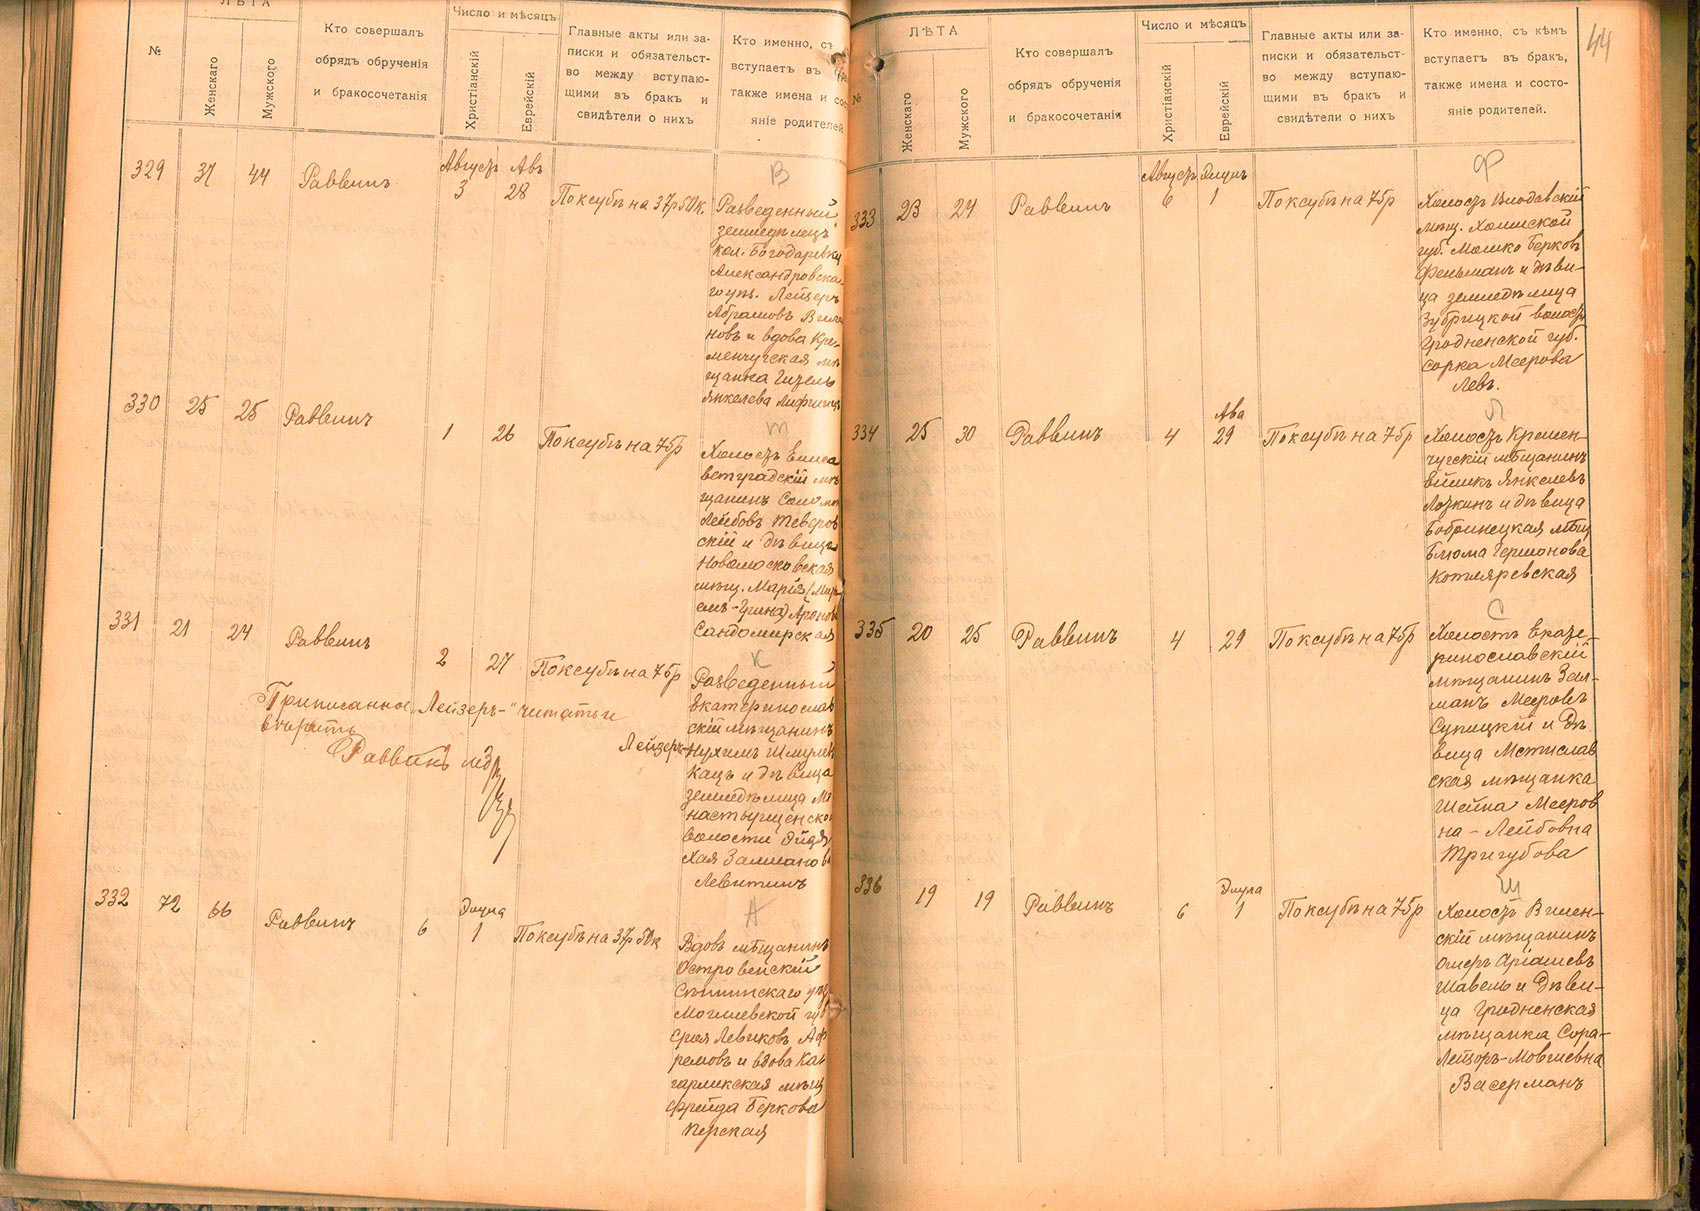 ЛѢТА
Число и мѣсяцъ
№
Женскаго
Мужского
Кто совершалъ
обрядъ обрученія
и бракосочетанія
Христіанскій
Еврейскій
Главные акты или за-
писки и обязательст-
во между вступаю-
щими въ бракъ и
свидѣтели о нихъ
Кто именно, съ
вступаетъ въ
также имена и сос
яніе родителей
329 37 44 Раввинъ Августъ 3 Авъ 28 По ксубѣ на 37р 50к.
В
Разведенный
земледѣлецъ
кол. Богодаровку
Александровска-
го уѣз. Лейзеръ
Абрамовъ
новъ и вдова Кре-
менчугская мѣ
щанка Гизель
Янкелева
330 25 25 Раввинъ 1 26 По ксубѣ на 75р
Т
Холостъ Елиса
ветградскій мѣ
щанинъ
Лейбовъ Тверов
скій и дѣвица
Новомосковская
мѣщ. Марія (Мир
емъ-Грина) Аронова
Сандомирская
331 21 24 Раввинъ 2 27 По ксубѣ на 75р
К
Разведенный
Екатеринослав
скій мѣщанинъ
Лейзеръ-Нухимъ Шмулев
Кацъ и дѣвица
земледѣлица Мо
настырщенской
волости
Хая Залманова
Левитинъ
Приписанное „Лейзеръ-“ читать и
вѣрить
Раввинъ
332 72 66 Раввинъ 6 Элула 1 По ксубѣ на 37р 50к
А
Вдовъ мѣщанинъ
Островенскій
Сѣннинскаго уѣз
Могилевской губ
Сроя Левиковъ Аф
ремовъ и вдова Ка
гарликская мѣщ
Фрейда Беркова
Перская
44
ЛѢТА
Число и мѣсяцъ
№
Женскаго
Мужского
Кто совершалъ
обрядъ обрученія
и бракосочетанія
Христіанскій
Еврейскій
Главные акты или за-
писки и обязательст-
во между вступаю-
щими въ бракъ и
свидѣтели о нихъ
Кто именно, съ кѣмъ
вступаетъ въ бракъ,
также имена и состо-
яніе родителей.
333 23 24 Раввинъ Августъ 6 Элулъ 1 По ксубѣ на 75р
Ф
Холостъ Влодавскій
мѣщ. Холмской
губ. Мошко Берковъ
Фельманъ и дѣви-
ца земледѣлица
Зубрицкой волости
Гродненской губ.
Сорка Меерова
Левъ.
334 25 30 Раввинъ 4 Ава 29 По ксубѣ на 75р
Л
Холостъ Кремен-
чугскій мѣщанинъ
Ейликъ Янкелевъ
Лозкинъ и дѣвица
Бобринецкая мѣщ
Блюма Гершонова
Котляревская
335 20 25 Раввинъ 4 29 По ксубѣ на 75р
С
Холостъ Екате-
ринославскій
мѣщанинъ Зал-
манъ Мееровъ
Супицкій и дѣ
вица Мстислав
ская мѣщанка
Шейна Мееров
на-Лейбовна
Тригубова
336 19 19 Раввинъ 6 Элула 1 По ксубѣ на 75р
Ш
Холостъ Вилен-
скій мѣщанинъ
Омеръ Аріашевъ
Шавель и дѣви-
ца Гродненская
мѣщанка Сора-
Лейзоръ-Мовшевна
Васерманъ